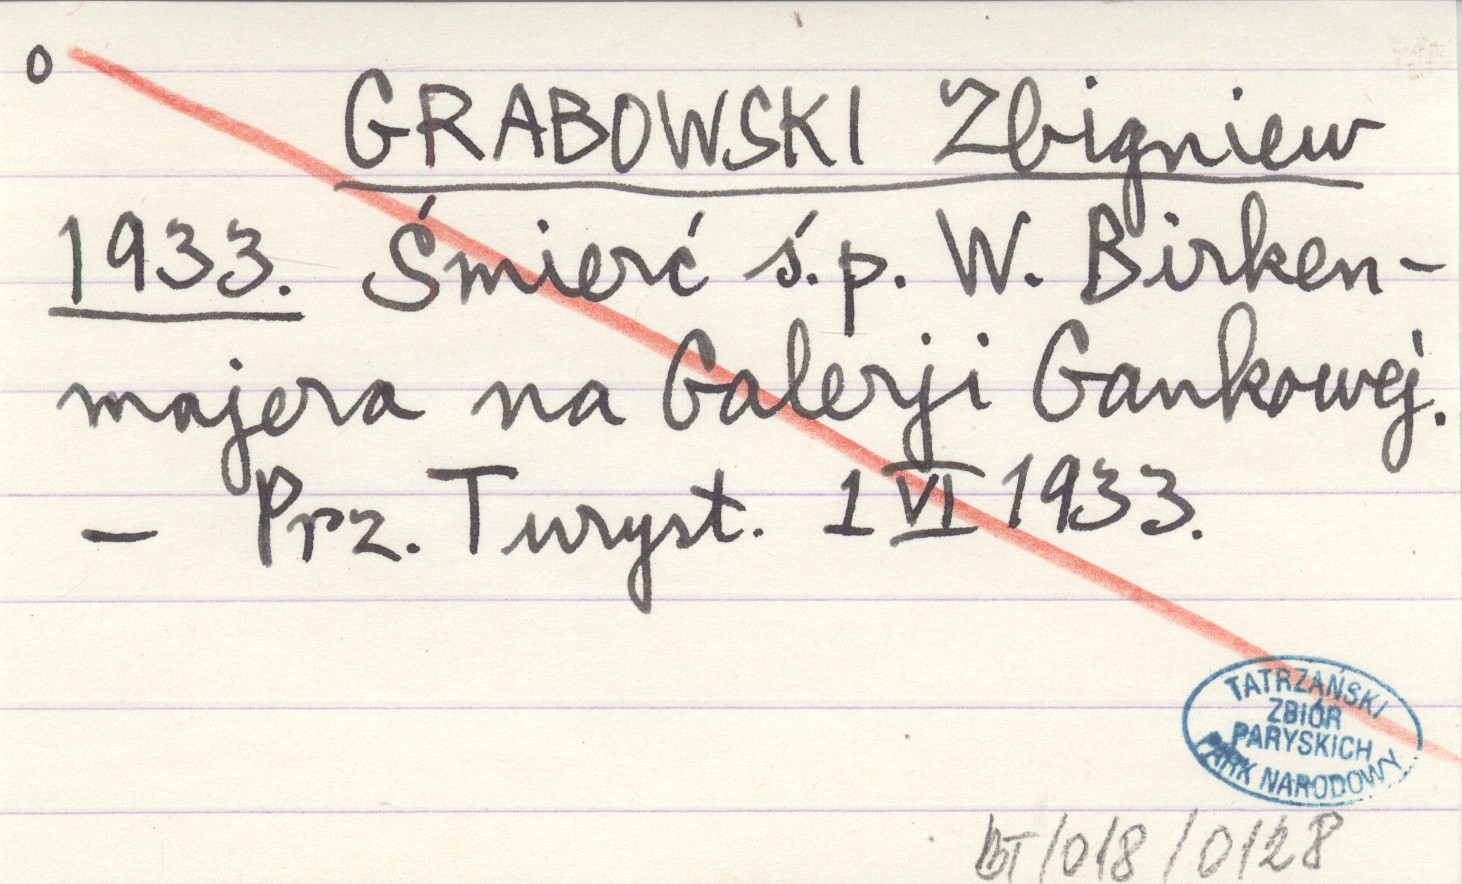 o
GRABOWSKI Zbigniew
1933. Śmierć ś.p. W. Birken-
majera na Galerji Gankowej.
- Prz. Turyst. 1 VI 1933.
TATRZAŃSKI
ZBIÓR
PARYSKICH
PARK NARODOWY
BT/018/0128